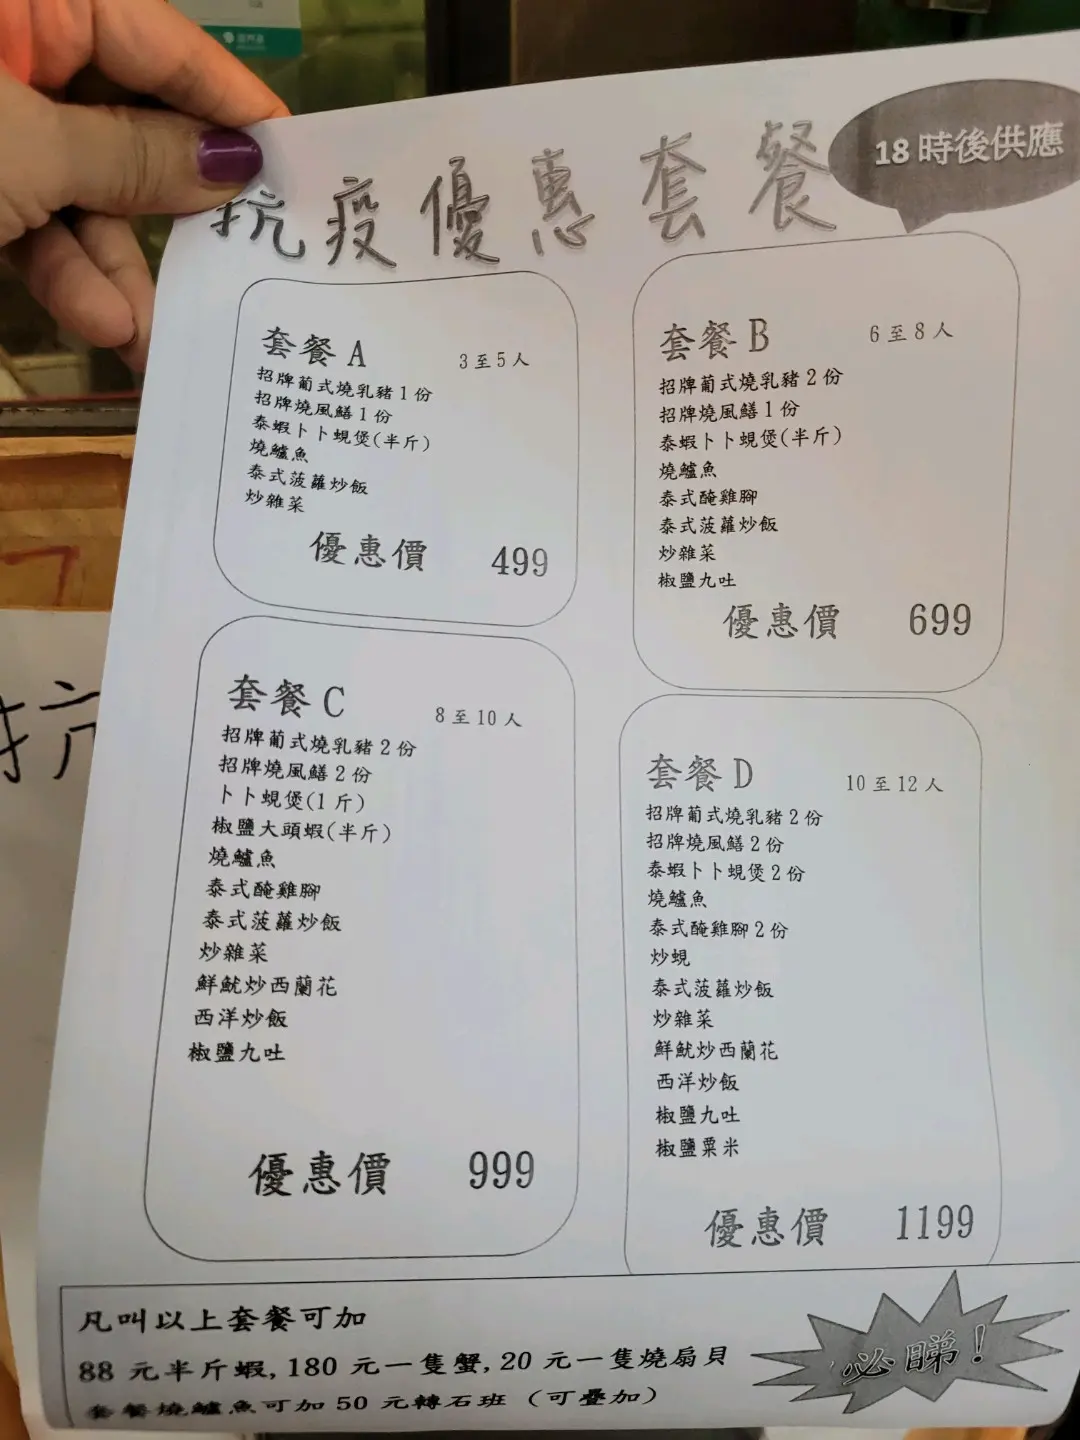 18 時後供應
抗疫優惠套餐
套餐 A
3 至 5 人
招牌葡式燒乳豬 1 份
招牌燒風鱔 1 份
泰蝦卜卜蜆煲(半斤)
燒鱸魚
泰式菠蘿炒飯
炒雜菜
優惠價 499
套餐 B
6 至 8 人
招牌葡式燒乳豬 2 份
招牌燒風鱔 1 份
泰蝦卜卜蜆煲(半斤)
燒鱸魚
泰式醃雞腳
泰式菠蘿炒飯
炒雜菜
椒鹽九吐
優惠價 699
套餐 C
8 至 10 人
招牌葡式燒乳豬 2 份
招牌燒風鱔 2 份
卜卜蜆煲(1 斤)
椒鹽大頭蝦(半斤)
燒鱸魚
泰式醃雞腳
泰式菠蘿炒飯
炒雜菜
鮮魷炒西蘭花
西洋炒飯
椒鹽九吐
優惠價 999
套餐 D
10 至 12 人
招牌葡式燒乳豬 2 份
招牌燒風鱔 2 份
泰蝦卜卜蜆煲 2 份
燒鱸魚
泰式醃雞腳 2 份
炒蜆
泰式菠蘿炒飯
炒雜菜
鮮魷炒西蘭花
西洋炒飯
椒鹽九吐
椒鹽粟米
優惠價 1199
凡叫以上套餐可加
88 元半斤蝦, 180 元一隻蟹, 20 元一隻燒扇貝
套餐燒鱸魚可加 50 元轉石班（可疊加）
必睇！
抗